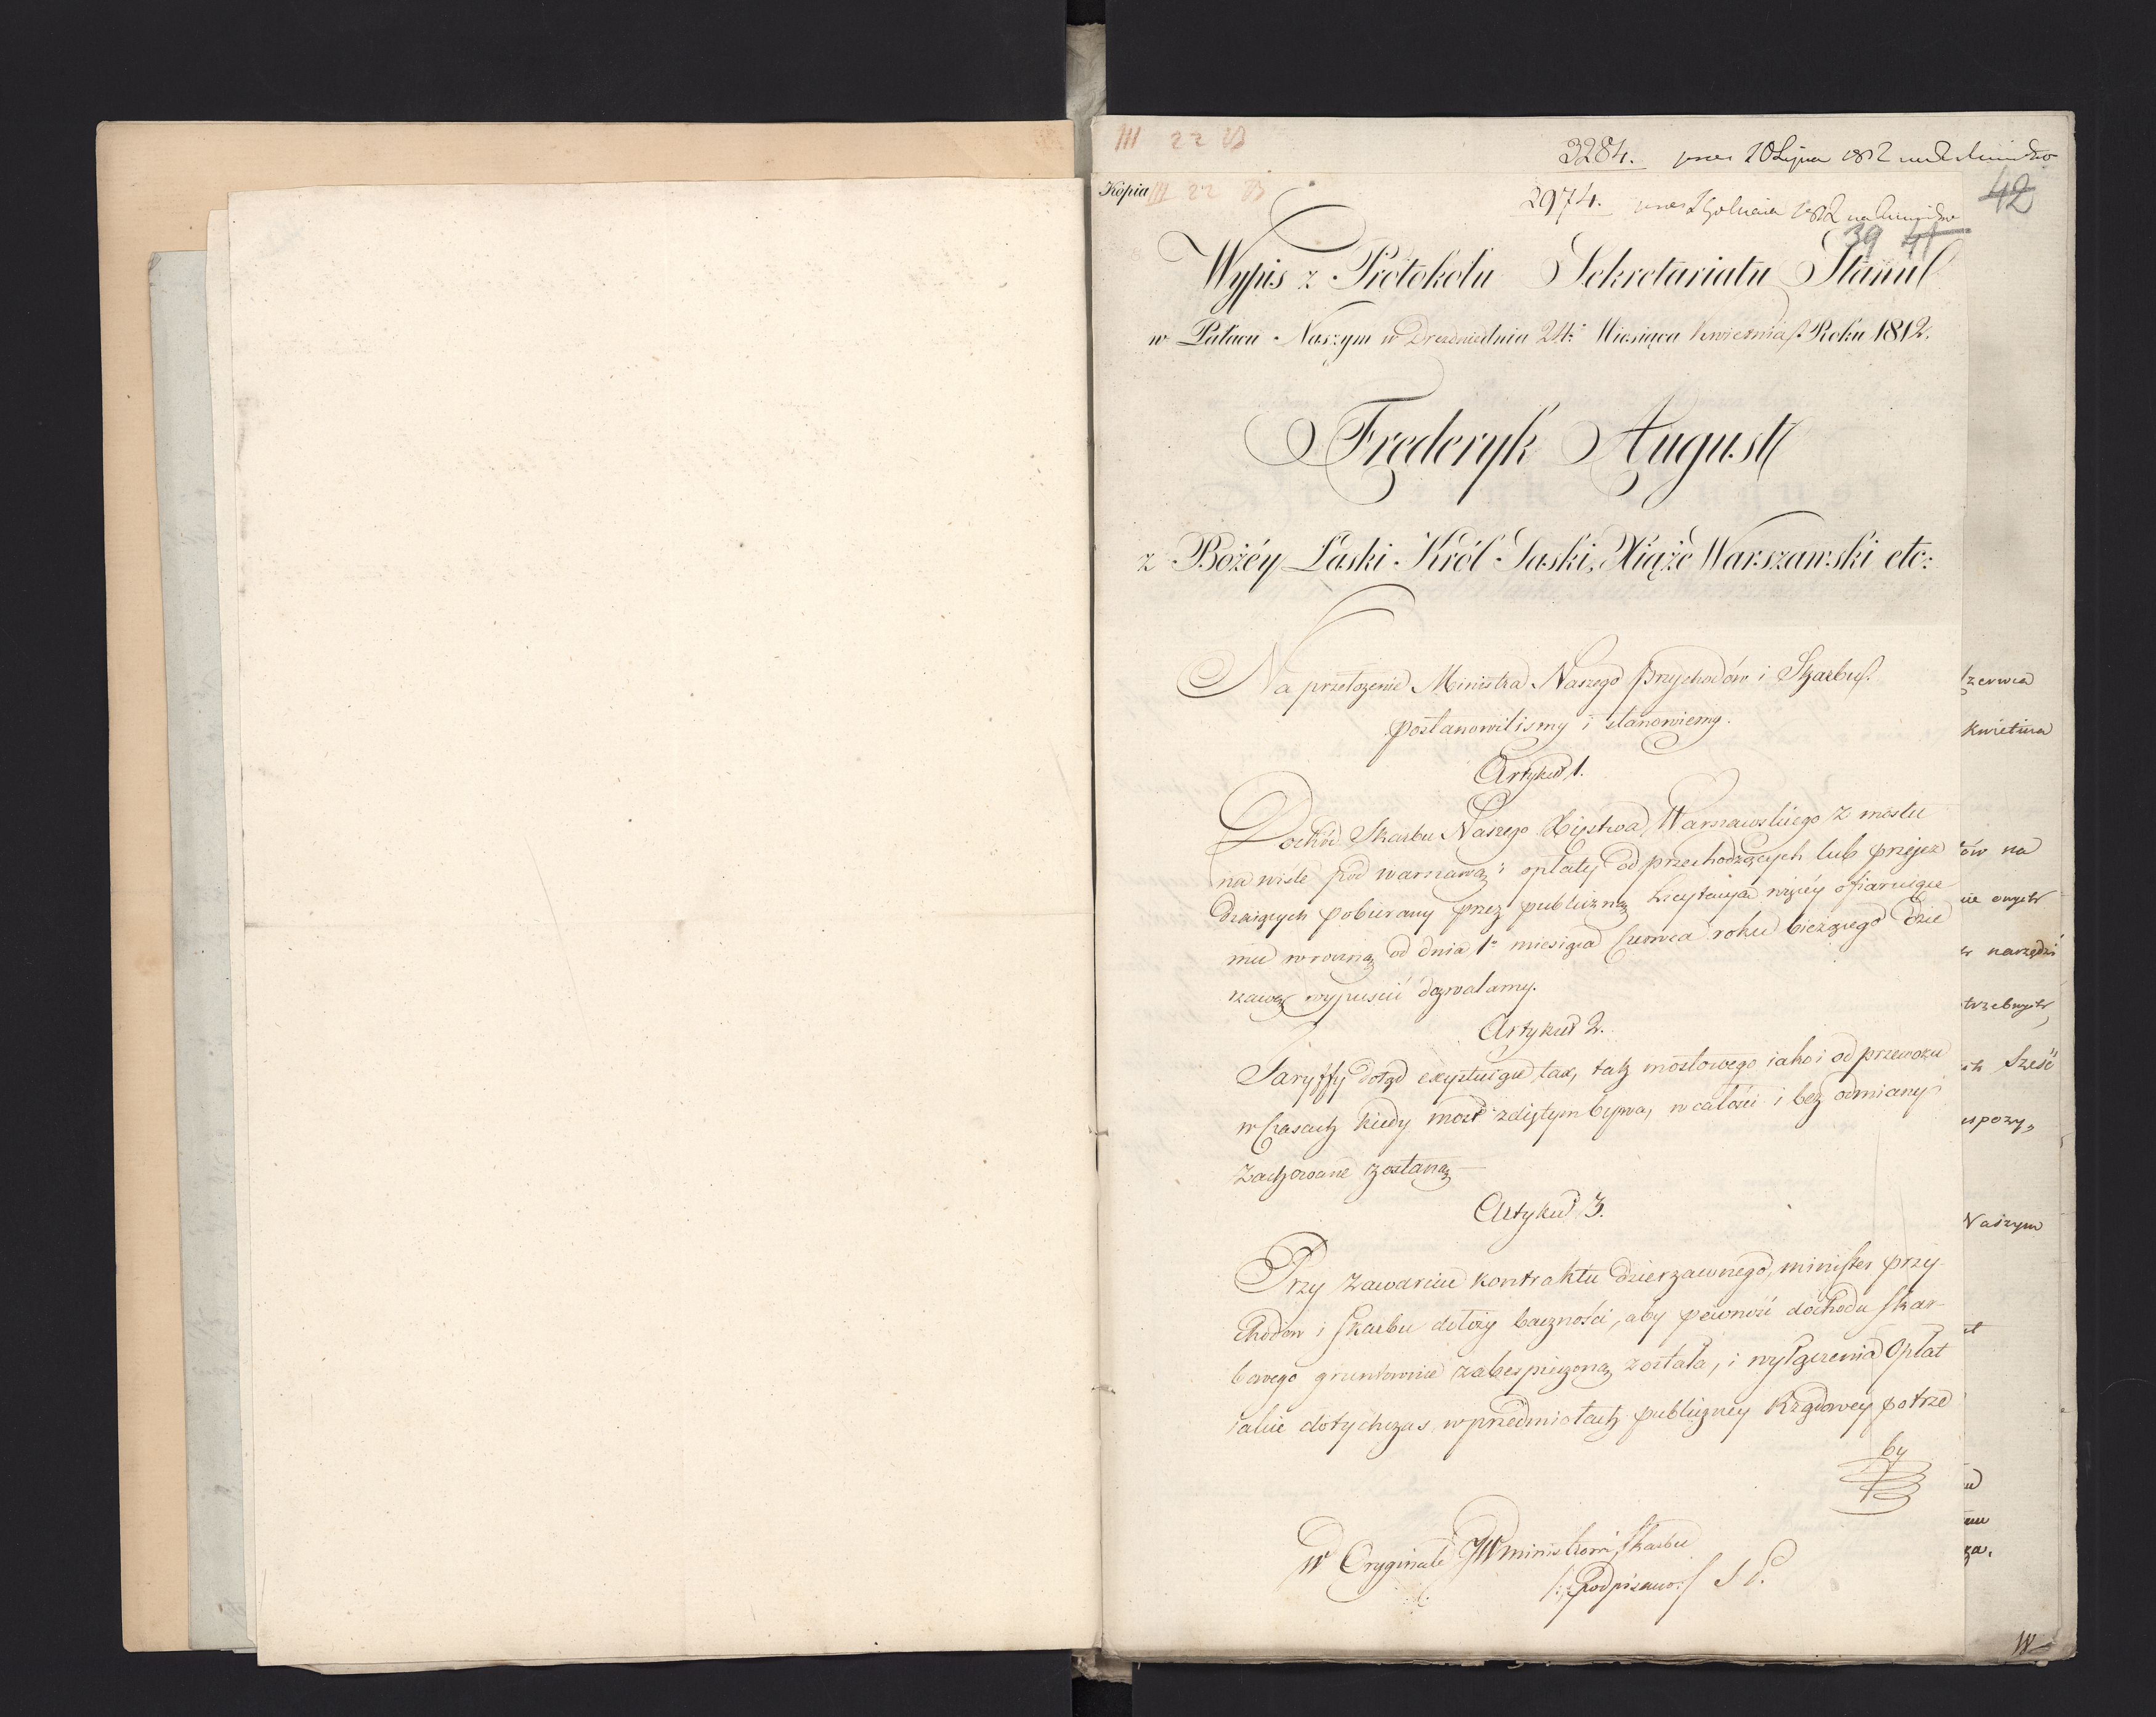 III 22 23
3284. 10 Lipca 1812
42
Kopia III 22 23
2974. 1812
39 41
Wypis z Protokołu Sekretariatu Stanu
w Pałacu Naszym w Dreznie dnia 24: Miesiąca Kwietnia Roku 1812.
Frederyk August
z Bożéy Łaski Król Saski, Xiążę Warszawski etc:
Na przełożenie Ministra Naszego Przychodów i Skarbu
postanowilismy i stanowiemy.
Artykuł 1.
Dochód Skarbu Naszego Xięstwa Warszawskiego z mostu
na wiśle pod warszawą i opłaty od przechodzących lub przejez
dzaiących pobierany przez publiczną Licytacyą więcéy ofiaruiące
mu wroczną od dnia 1º miesiąca Czerwca roku bieżącego dzie
rzawę wypuścić dozwalamy.
Artykuł 2.
Taryffy dotąd exystuiące tax, tak mostowego iako i od przewozu
w Czasach kiedy most zdiętym bywa, w całości i bez odmiany
Zachowane zostaną
Artykuł 3.
Przy zawarciu kontraktu dzierzawnego, minister przy
chodow i skarbu dołoży baczności, aby pewność dochodu skar-
bowego gruntownie zabespieczoną została, i wyłączenia Opłat
iakie dotychczas w przedmiotach publiczney Rządowey potrze
by
W Oryginale JW ministrowi Skarbu
/:podpisano:/ S P.
Czerwca
Kwietnia
ów na
ie onych
narzędzi
trzebnych,
ch Sześć
ispozy„
Naszym
za.
W